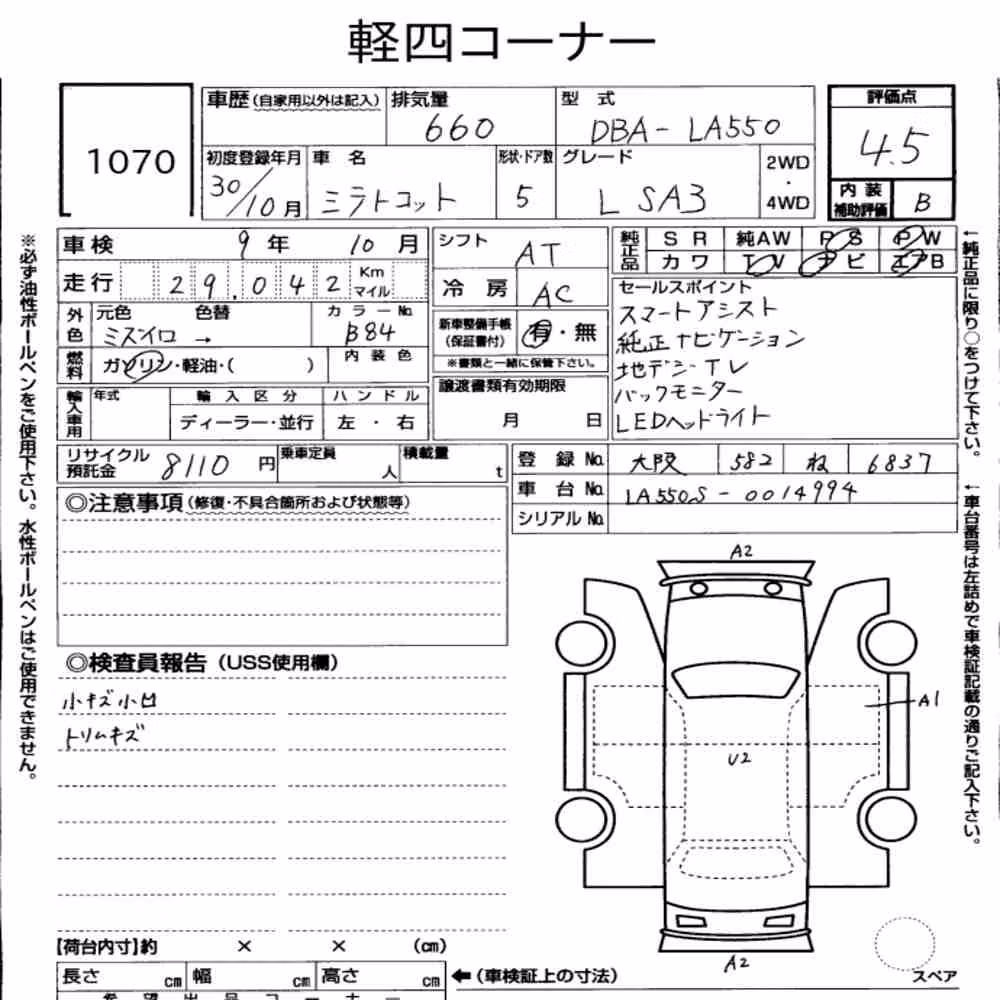 軽四コーナー
1070
車歴(自家用以外は記入) 排気量 型式 評価点
660 DBA- LA550 4.5
初度登録年月 車名 形状・ドア数 グレード 2WD・4WD
30/10月 ミラトコット 5 L SA3
内装補助評価 B
車検 9年 10月
走行 29.042 Km マイル
外色 元色 色替 カラーNo.
ミズイロ → B84
燃料 ガソリン・軽油・( ) 内装色
輸入車用 年式 輸入区分 ハンドル
ディーラー・並行 左・右
シフト AT
冷房 AC
新車整備手帳(保証書付) 有・無
※書類と一緒に保管下さい。
譲渡書類有効期限
月 日
純正品 SR 純AW PS PW
カワ TV ナビ エアB
セールスポイント
スマートアシスト
純正ナビゲーション
地デジTV
バックモニター
LEDヘッドライト
リサイクル預託金 8110円 乗車定員 人 積載量 t
登録No. 大阪 582 ね 6837
車台No. LA550S-0014994
シリアルNo.
◎注意事項(修復・不具合箇所および状態等)
◎検査員報告(USS使用欄)
小キズ小凹
トリムキズ
A2
A1
U2
A2
スペア
【荷台内寸】約 × × (cm)
長さ cm 幅 cm 高さ cm ←(車検証上の寸法)
希望出品コーナー
※必ず油性ボールペンをご使用下さい。水性ボールペンはご使用できません。
←純正品に限り○をつけて下さい。
←車台番号は左詰めで車検証記載の通りご記入下さい。